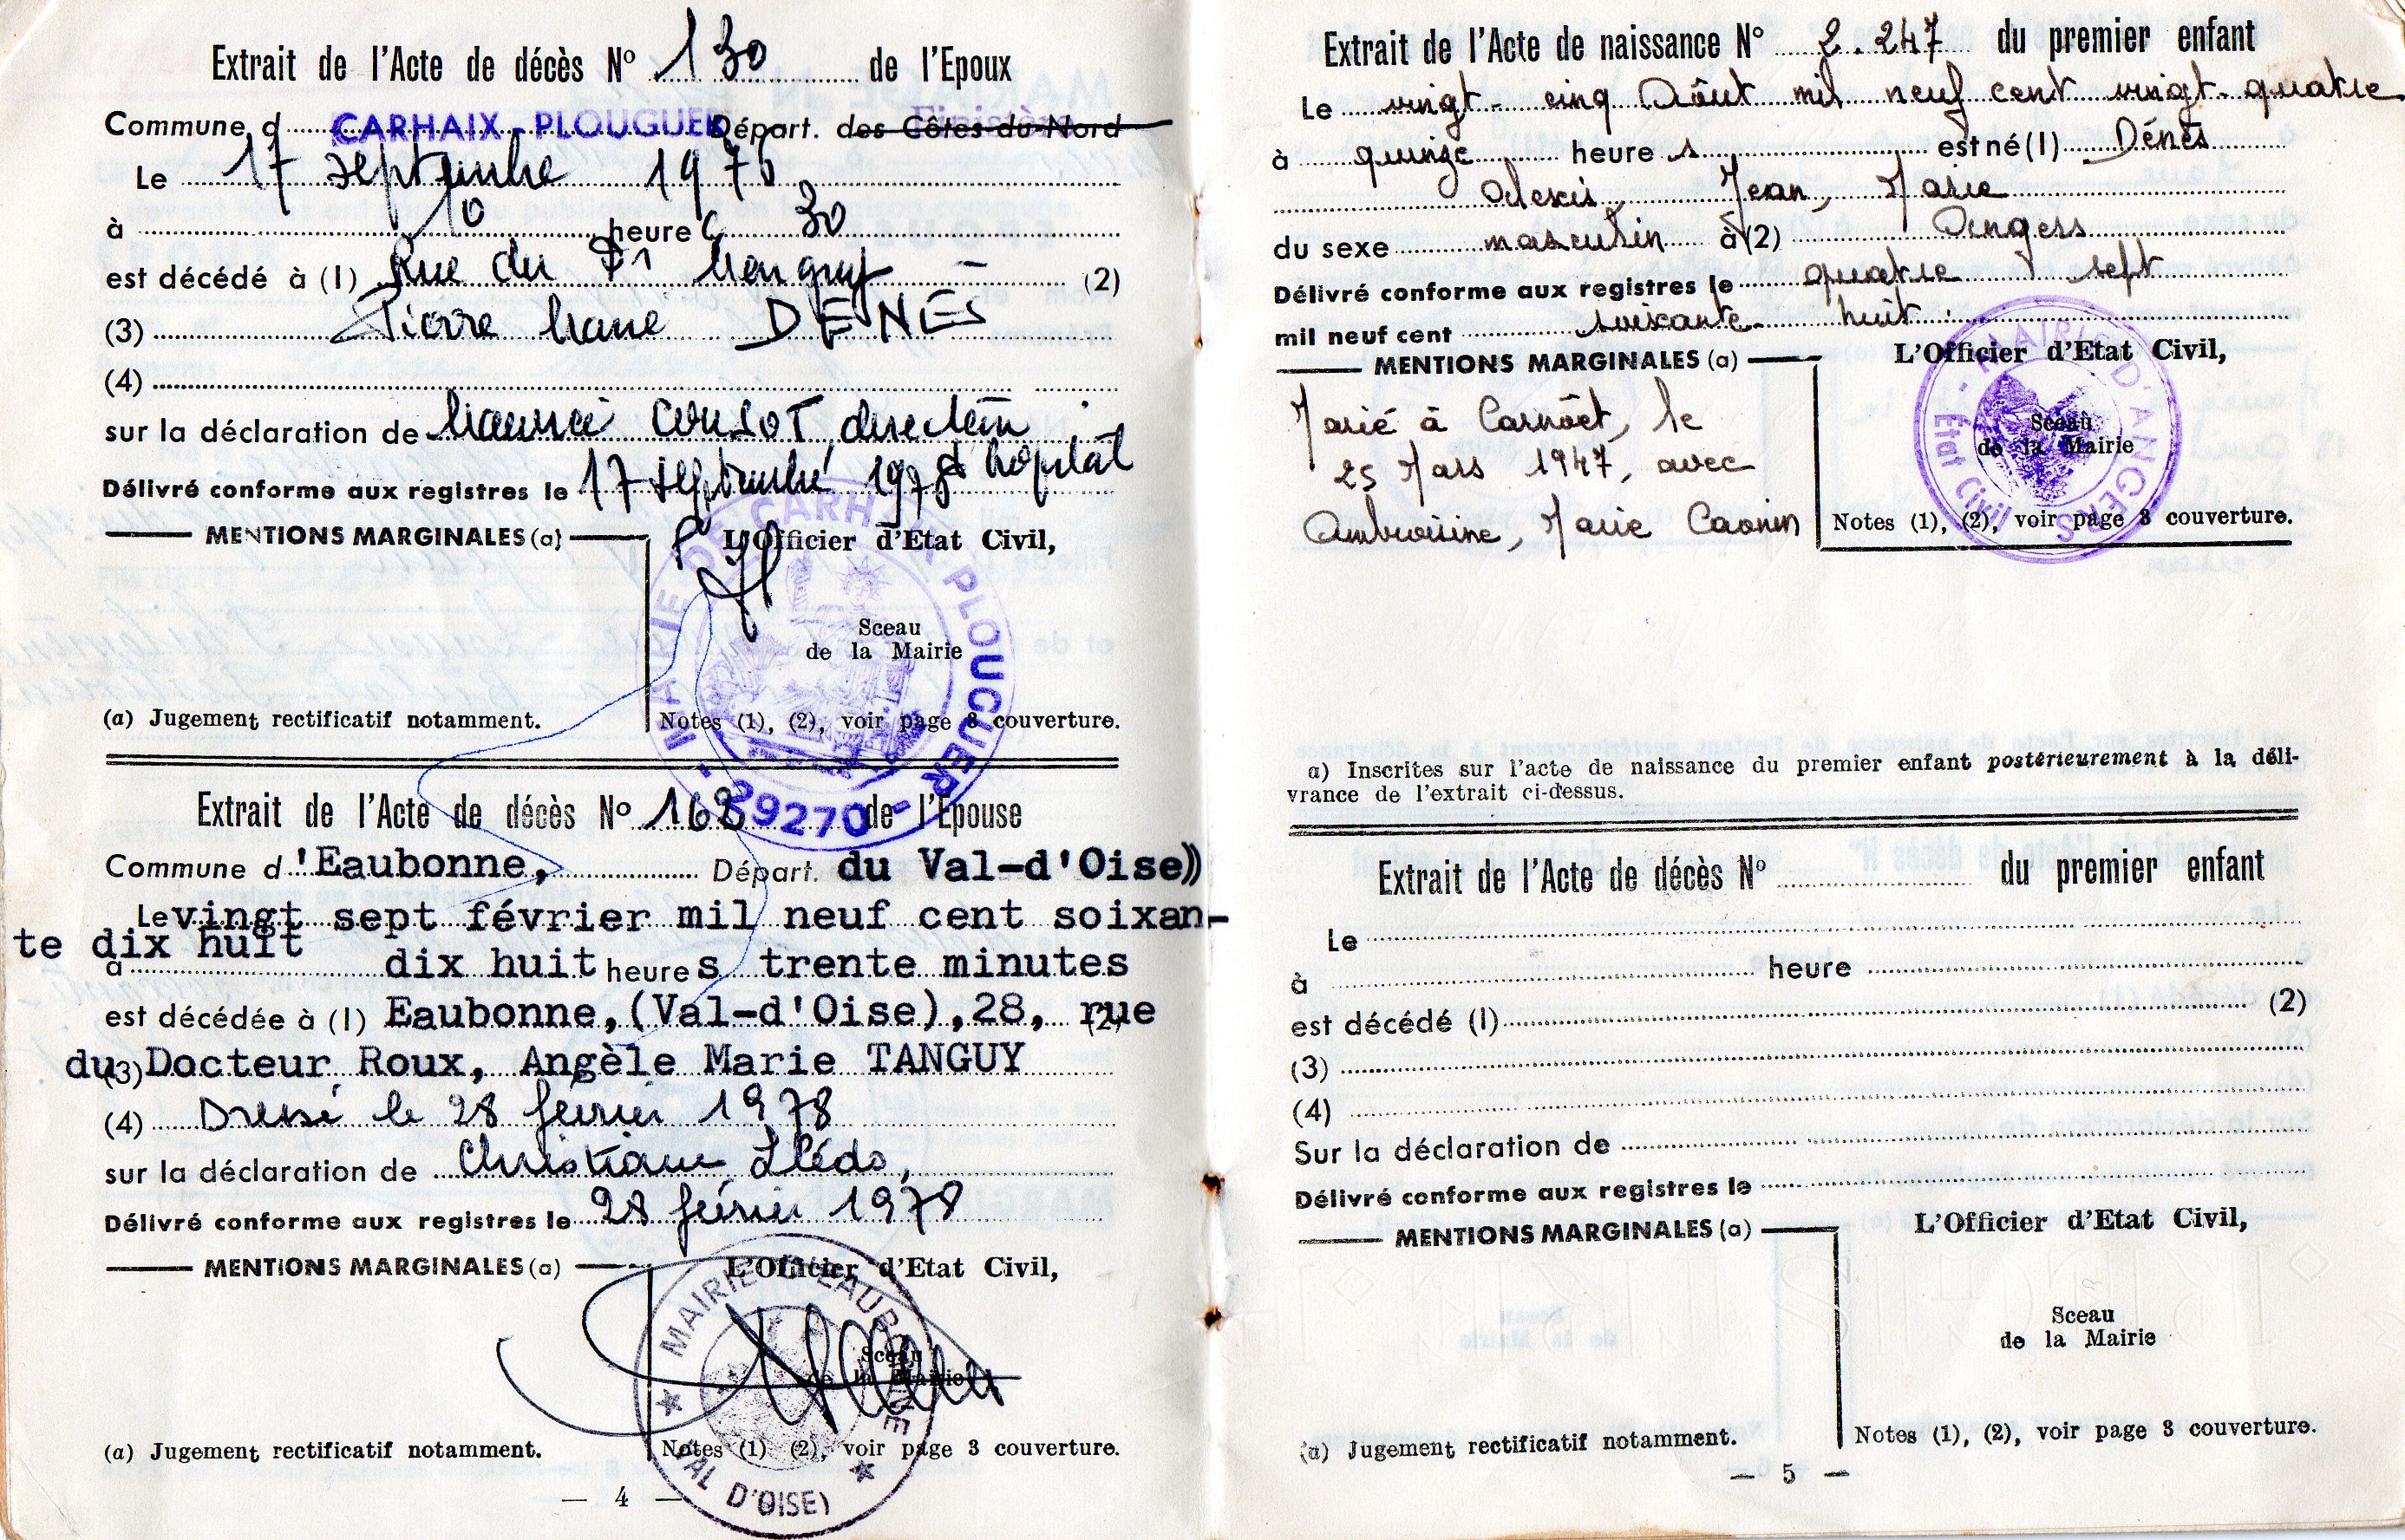 Extrait de l'Acte de décès Nº 130 de l'Epoux
Commune d CARHAIX-PLOUGUER Départ. des Côtes-du-Nord Finistère
Le 17 septembre 1976
à 10 heure s 30
est décédé à (1) Rue du Dr Menguy — (2)
(3) Pierre Marie DENES
(4)
sur la déclaration de COUSOT, directeur
d hôpital
Délivré conforme aux registres le 17 septembre 1978
MENTIONS MARGINALES (a)
L'Officier d'Etat Civil,
Sceau
de la Mairie
MAIRIE DE CARHAIX PLOUGUER - 29270 -
(a) Jugement rectificatif notamment.
Notes (1), (2), voir page 3 couverture.
Extrait de l'Acte de décès Nº 168 de l'Epouse
Commune d 'Eaubonne, Départ. du Val-d'Oise)
Le vingt sept février mil neuf cent soixan-
te dix huit
à dix huit heure s trente minutes
est décédée à (1) Eaubonne,(Val-d'Oise),28, rue (2)
du (3) Docteur Roux, Angèle Marie TANGUY
(4) Dressé le 28 février 1978
sur la déclaration de Christiane Llédo,
Délivré conforme aux registres le 28 février 1978
MENTIONS MARGINALES (a)
L'Officier d'Etat Civil,
Sceau
de la Mairie
MAIRIE D'EAUBONNE (VAL D'OISE)
(a) Jugement rectificatif notamment.
Notes (1) (2), voir page 3 couverture.
— 4 —
Extrait de l'Acte de naissance Nº 2.247 du premier enfant
Le vingt-cinq Août mil neuf cent vingt-quatre
à quinze heure s est né (1) Dénès
Alexis, Jean, Marie
du sexe masculin à (2) Angers
Délivré conforme aux registres le quatre sept
mil neuf cent soixante-huit.
MENTIONS MARGINALES (a)
L'Officier d'Etat Civil,
Marié à Carnöet, le
25 Mars 1947, avec
Ambroisine, Marie Caonin
Sceau
de la Mairie
MAIRIE D'ANGERS - Etat Civil -
Notes (1), (2), voir page 3 couverture.
a) Inscrites sur l'acte de naissance du premier enfant postérieurement à la déli-
vrance de l'extrait ci-dessus.
Extrait de l'Acte de décès Nº du premier enfant
Le
à heure
est décédé (1) (2)
(3)
(4)
Sur la déclaration de
Délivré conforme aux registres le
MENTIONS MARGINALES (a)
L'Officier d'Etat Civil,
Sceau
de la Mairie
(a) Jugement rectificatif notamment.
Notes (1), (2), voir page 3 couverture.
— 5 —